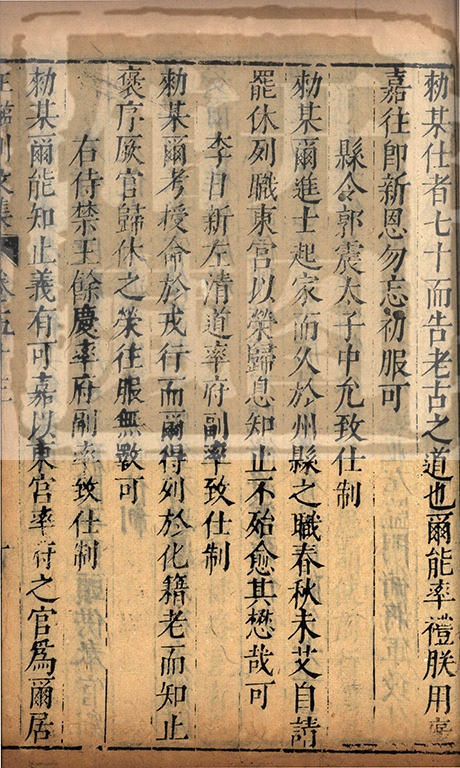 勑某仕者七十而告老古之道也爾能率禮朕用
嘉往卽新恩勿忘初服可
縣令郭震太子中允致仕制
勑某爾進士起家而久於州縣之職春秋未艾自請
罷休列職東宮以榮歸息知止不殆愈其懋哉可
李日新左清道率府副率致仕制
勑某爾考授命於戎行而爾得列於仕籍老而知止
褒序厥官歸休之榮往服無斁可
右侍禁王餘慶率府副率致仕制
勑某爾能知止義有可嘉以東宮率府之官爲爾居
卷五十三